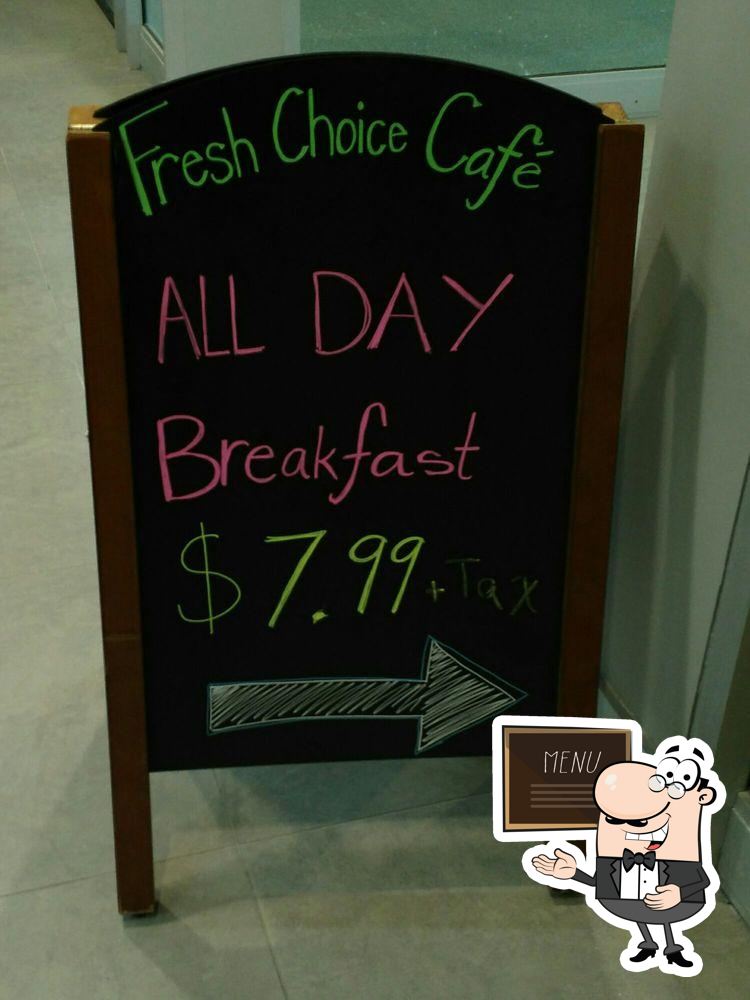 Fresh Choice Café
ALL DAY
Breakfast
$7.99 + Tax
MENU